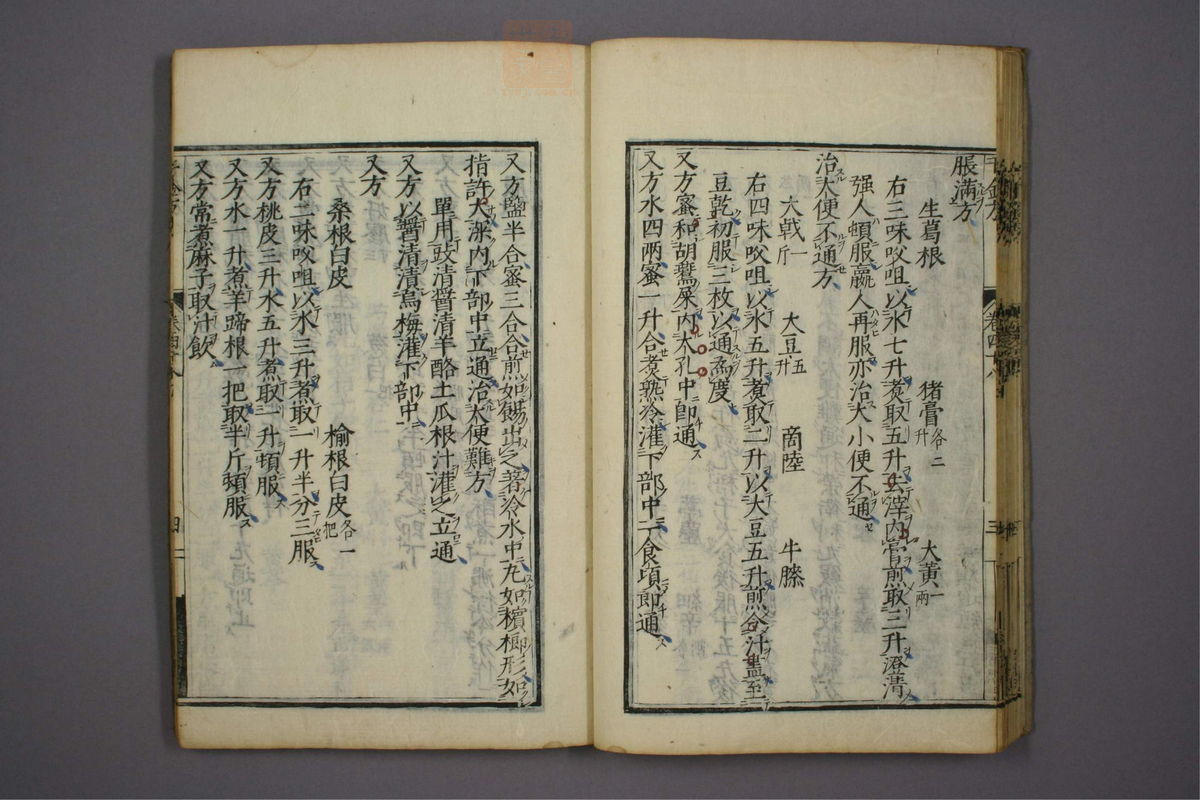 脹滿方
生葛根 猪膏各二升 大黃一兩
右三味㕮咀以水七升煮取五升去滓內膏煎取三升澄清
强人頓服羸人再服亦治大小便不通
治大便不通方
大戟一斤 大豆五升 商陸 牛膝
右四味㕮咀以水五升煮取二升以大豆五升煎令汁盡至
豆乾初服三枚以通爲度
又方蜜和胡鷰屎內大孔中卽通
又方水四兩蜜一升合煮熟冷灌下部中一食頃卽通
又方鹽半合蜜三合合煎如餳出之著冷水中丸如檳榔形如
指許大深內下部中立通治大便難方
單用豉清醬清羊酪土瓜根汁灌之立通
又方以醬清漬烏梅灌下部中
又方
桑根白皮 榆根白皮各一把
右二味㕮咀以水三升煮取一升半分三服
又方桃皮三升水五升煮取一升頓服
又方水一升煮羊蹄根一把取半斤頓服
又方常煮麻子取汁飲